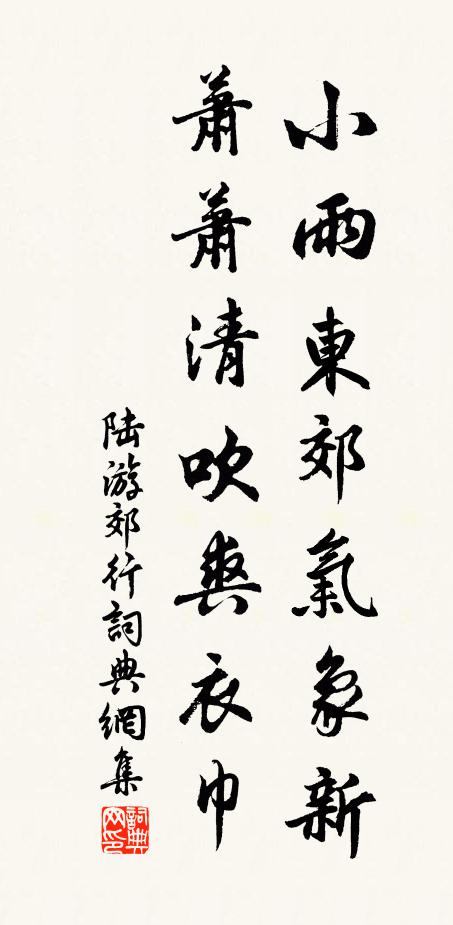 小雨東郊氣象新
蕭蕭清吹爽衣巾
陆游郊行詞典網集
詞典网印